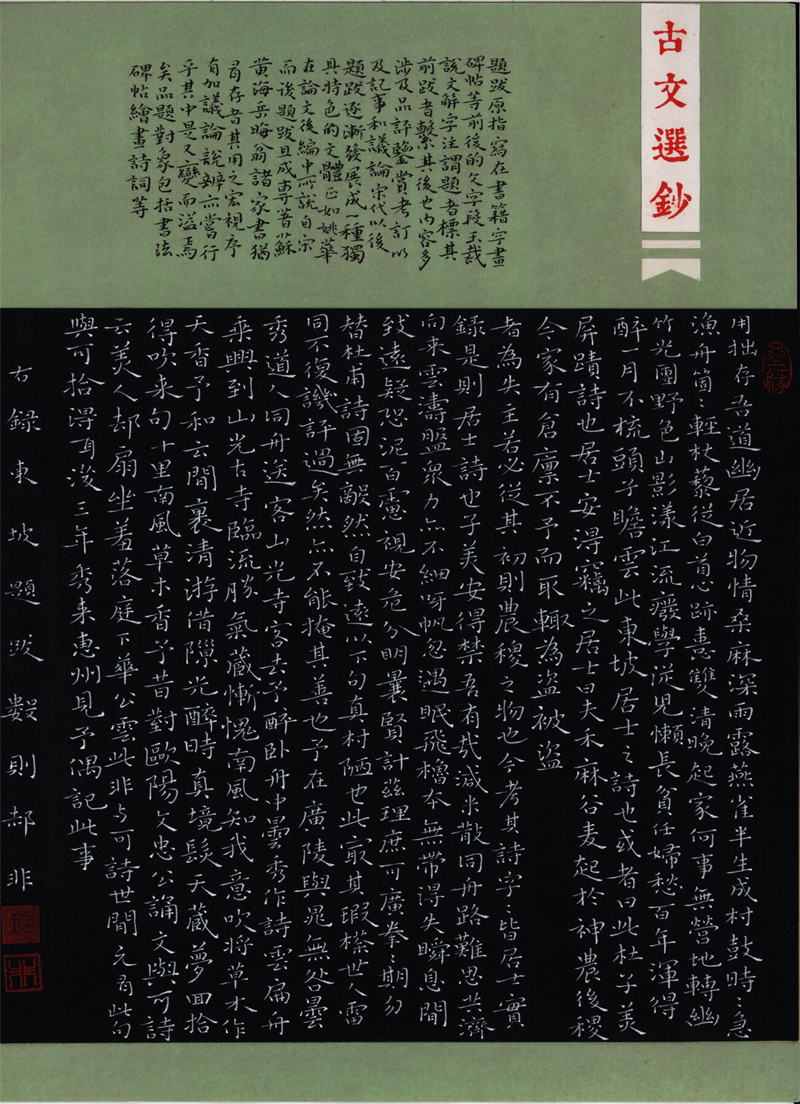 古文選鈔
題跋原指寫在書籍字畫
碑帖等前後的文字段玉裁
說文解字注謂題者標其
前跋者繫其後也內容多
涉及品評鑒賞考訂以
及記事和議論宋代以後
題跋逐漸發展成一種獨
具特色的文體正如姚華
在論文後編中所說自宋
而後題跋且成專著蘇
黃海岳晦翁諸家書猶
有存者其用之宏視序
有加議論說辨亦當行
乎其中是又變而溢焉
矣品題對象包括書法
碑帖繪畫詩詞等
用拙存吾道幽居近物情桑麻深雨露燕雀半生成村鼓時〻急
漁舟箇〻輕杖藜從白首心跡喜雙清晚起家何事無營地轉幽
竹光團野色山影漾江流廢學從兒懶長貧任婦愁百年渾得
醉一月不梳頭子瞻雲此東坡居士之詩也或者曰此杜子美
屏蹟詩也居士安得竊之居士曰夫禾麻谷麦起於神農後稷
今家有倉廩不予而取輒為盜被盜
者為失主若必從其初則農稷之物也今考其詩字〻皆居士實
錄是則居士詩也子美安得禁吾有哉減米散同舟路難思共濟
向來雲濤盤眾力亦不細呀帆忽遇眠飛櫓本無帶得失瞬息間
致遠疑恐泥百慮視安危分明曩賢計茲理庶可廣拳〻期勿
替杜甫詩固無敵然自致遠以下句真村陋也此最其瑕樣世人雷
同不復譏評過矣然亦不能掩其善也予在廣陵與晁無咎曇
秀道人同舟送客山光寺客去予醉臥舟中曇秀作詩雲扁舟
乘興到山光古寺臨流勝氣藏慚愧南風知我意吹將草木作
天香予和云閒裏清游借隙光醉時真境髮天藏夢回拾
得吹来句十里南風草木香予昔對歐陽文忠公誦文與可詩
云美人却扇坐羞落庭下華公雲此非与可詩世間元有此句
與可拾得耳後三年秀来惠州見予偶記此事
右錄東坡題跋數則郝非